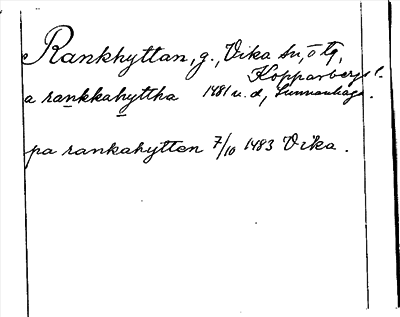 Rankhyttan, g., Vika sn, ö tg,
Kopparbergs l.
a rankkahyttha 1481 u. d., Sunnanhaga.
pa rankahytten 7/10 1483 Vika.